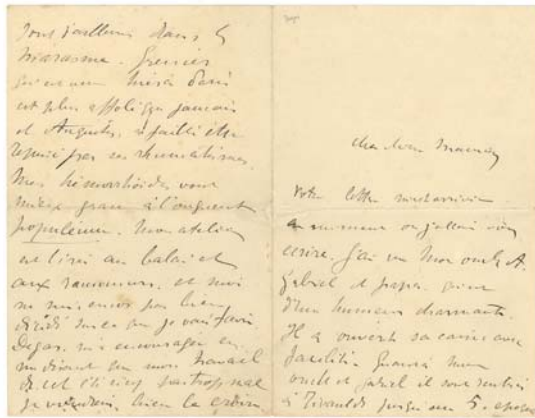 dans le
marasme. Grenier
qui est
est plus affolé que jamais
et Anquetin, a failli être
repincé par ses rhumatismes.
Mes hémorrhoïdes vont
mieux grace à l'onguent
populeum. Mon atelier
est livré au balai et
aux ramoneurs, et moi
ne suis encor pas bien
décidé sur ce que je vais faire.
Degas m'a encouragé en
me disant que mon travail
de cet été pas trop mal
je voudrais bien le croire
chère Maman
Votre lettre m'est arrivée
au moment ou j'allais vous
écrire. J'ai vu Mon oncle
Gabriel et papa, qui est
d'une humeur charmante.
Il a ouvert sa caisse avec
facilité. Quant à mon
oncle et Gabriel il sont
à Rivaulde jusqu'au 5, époque